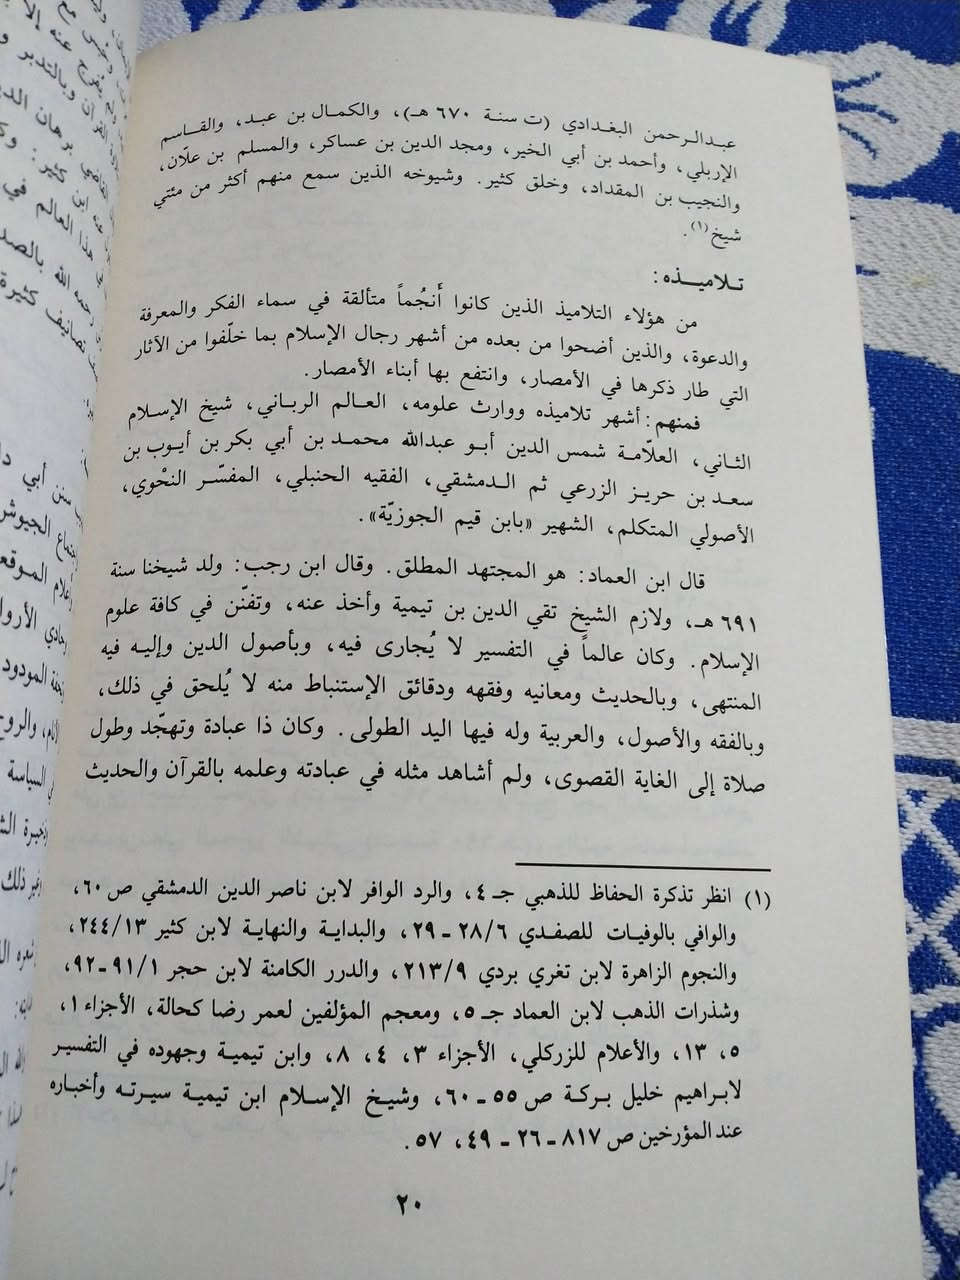 عبدالرحمن البغدادي (ت سنة ٦٧٠ هـ)، والكمال بن عبد، والقاسم
الإربلي، وأحمد بن أبي الخير، ومجد الدين بن عساكر، والمسلم بن علّان،
والنجيب بن المقداد، وخلق كثير. وشيوخه الذين سمع منهم أكثر من مئتي
شيخ(١).
تلاميذه:
من هؤلاء التلاميذ الذين كانوا أَنجُماً متألقة في سماء الفكر والمعرفة
والدعوة، والذين أضحوا من بعده من أشهر رجال الإسلام بما خلّفوا من الآثار
التي طار ذكرها في الأمصار، وانتفع بها أبناء الأمصار.
فمنهم: أشهر تلاميذه ووارث علومه، العالم الرباني، شيخ الإسلام
الثاني، العلّامة شمس الدين أبو عبدالله محمد بن أبي بكر بن أيوب بن
سعد بن حريز الزرعي ثم الدمشقي، الفقيه الحنبلي، المفسّر النحْوي،
الأصولي المتكلم، الشهير «بابن قيم الجوزيّة».
قال ابن العماد: هو المجتهد المطلق. وقال ابن رجب: ولد شيخنا سنة
٦٩١ هـ، ولازم الشيخ تقي الدين بن تيمية وأخذ عنه، وتفنّن في كافة علوم
الإسلام. وكان عالماً في التفسير لا يُجارى فيه، وبأصول الدين وإليه فيه
المنتهى، وبالحديث ومعانيه وفقهه ودقائق الإستنباط منه لا يُلحق في ذلك،
وبالفقه والأصول، والعربية وله فيها اليد الطولى. وكان ذا عبادة وتهجّد وطول
صلاة إلى الغاية القصوى، ولم أشاهد مثله في عبادته وعلمه بالقرآن والحديث
(١) انظر تذكرة الحفاظ للذهبي جـ ٤، والرد الوافر لابن ناصر الدين الدمشقي ص ٦٠،
والوافي بالوفيات للصفدي ٢٨/٦ - ٢٩، والبداية والنهاية لابن كثير ٢٤٤/١٣،
والنجوم الزاهرة لابن تغري بردي ٢١٣/٩، والدرر الكامنة لابن حجر ٩١/١-٩٢،
وشذرات الذهب لابن العماد جـ ٥، ومعجم المؤلفين لعمر رضا كحالة، الأجزاء ١،
٥، ١٣، والأعلام للزركلي، الأجزاء ٣، ٤، ٨، وابن تيمية وجهوده في التفسير
لابراهيم خليل بركة ص ٥٥ - ٦٠، وشيخ الإسلام ابن تيمية سيرته وأخباره
عند المؤرخين ص ٨١٧ - ٢٦ - ٤٩، ٥٧.
٢٠